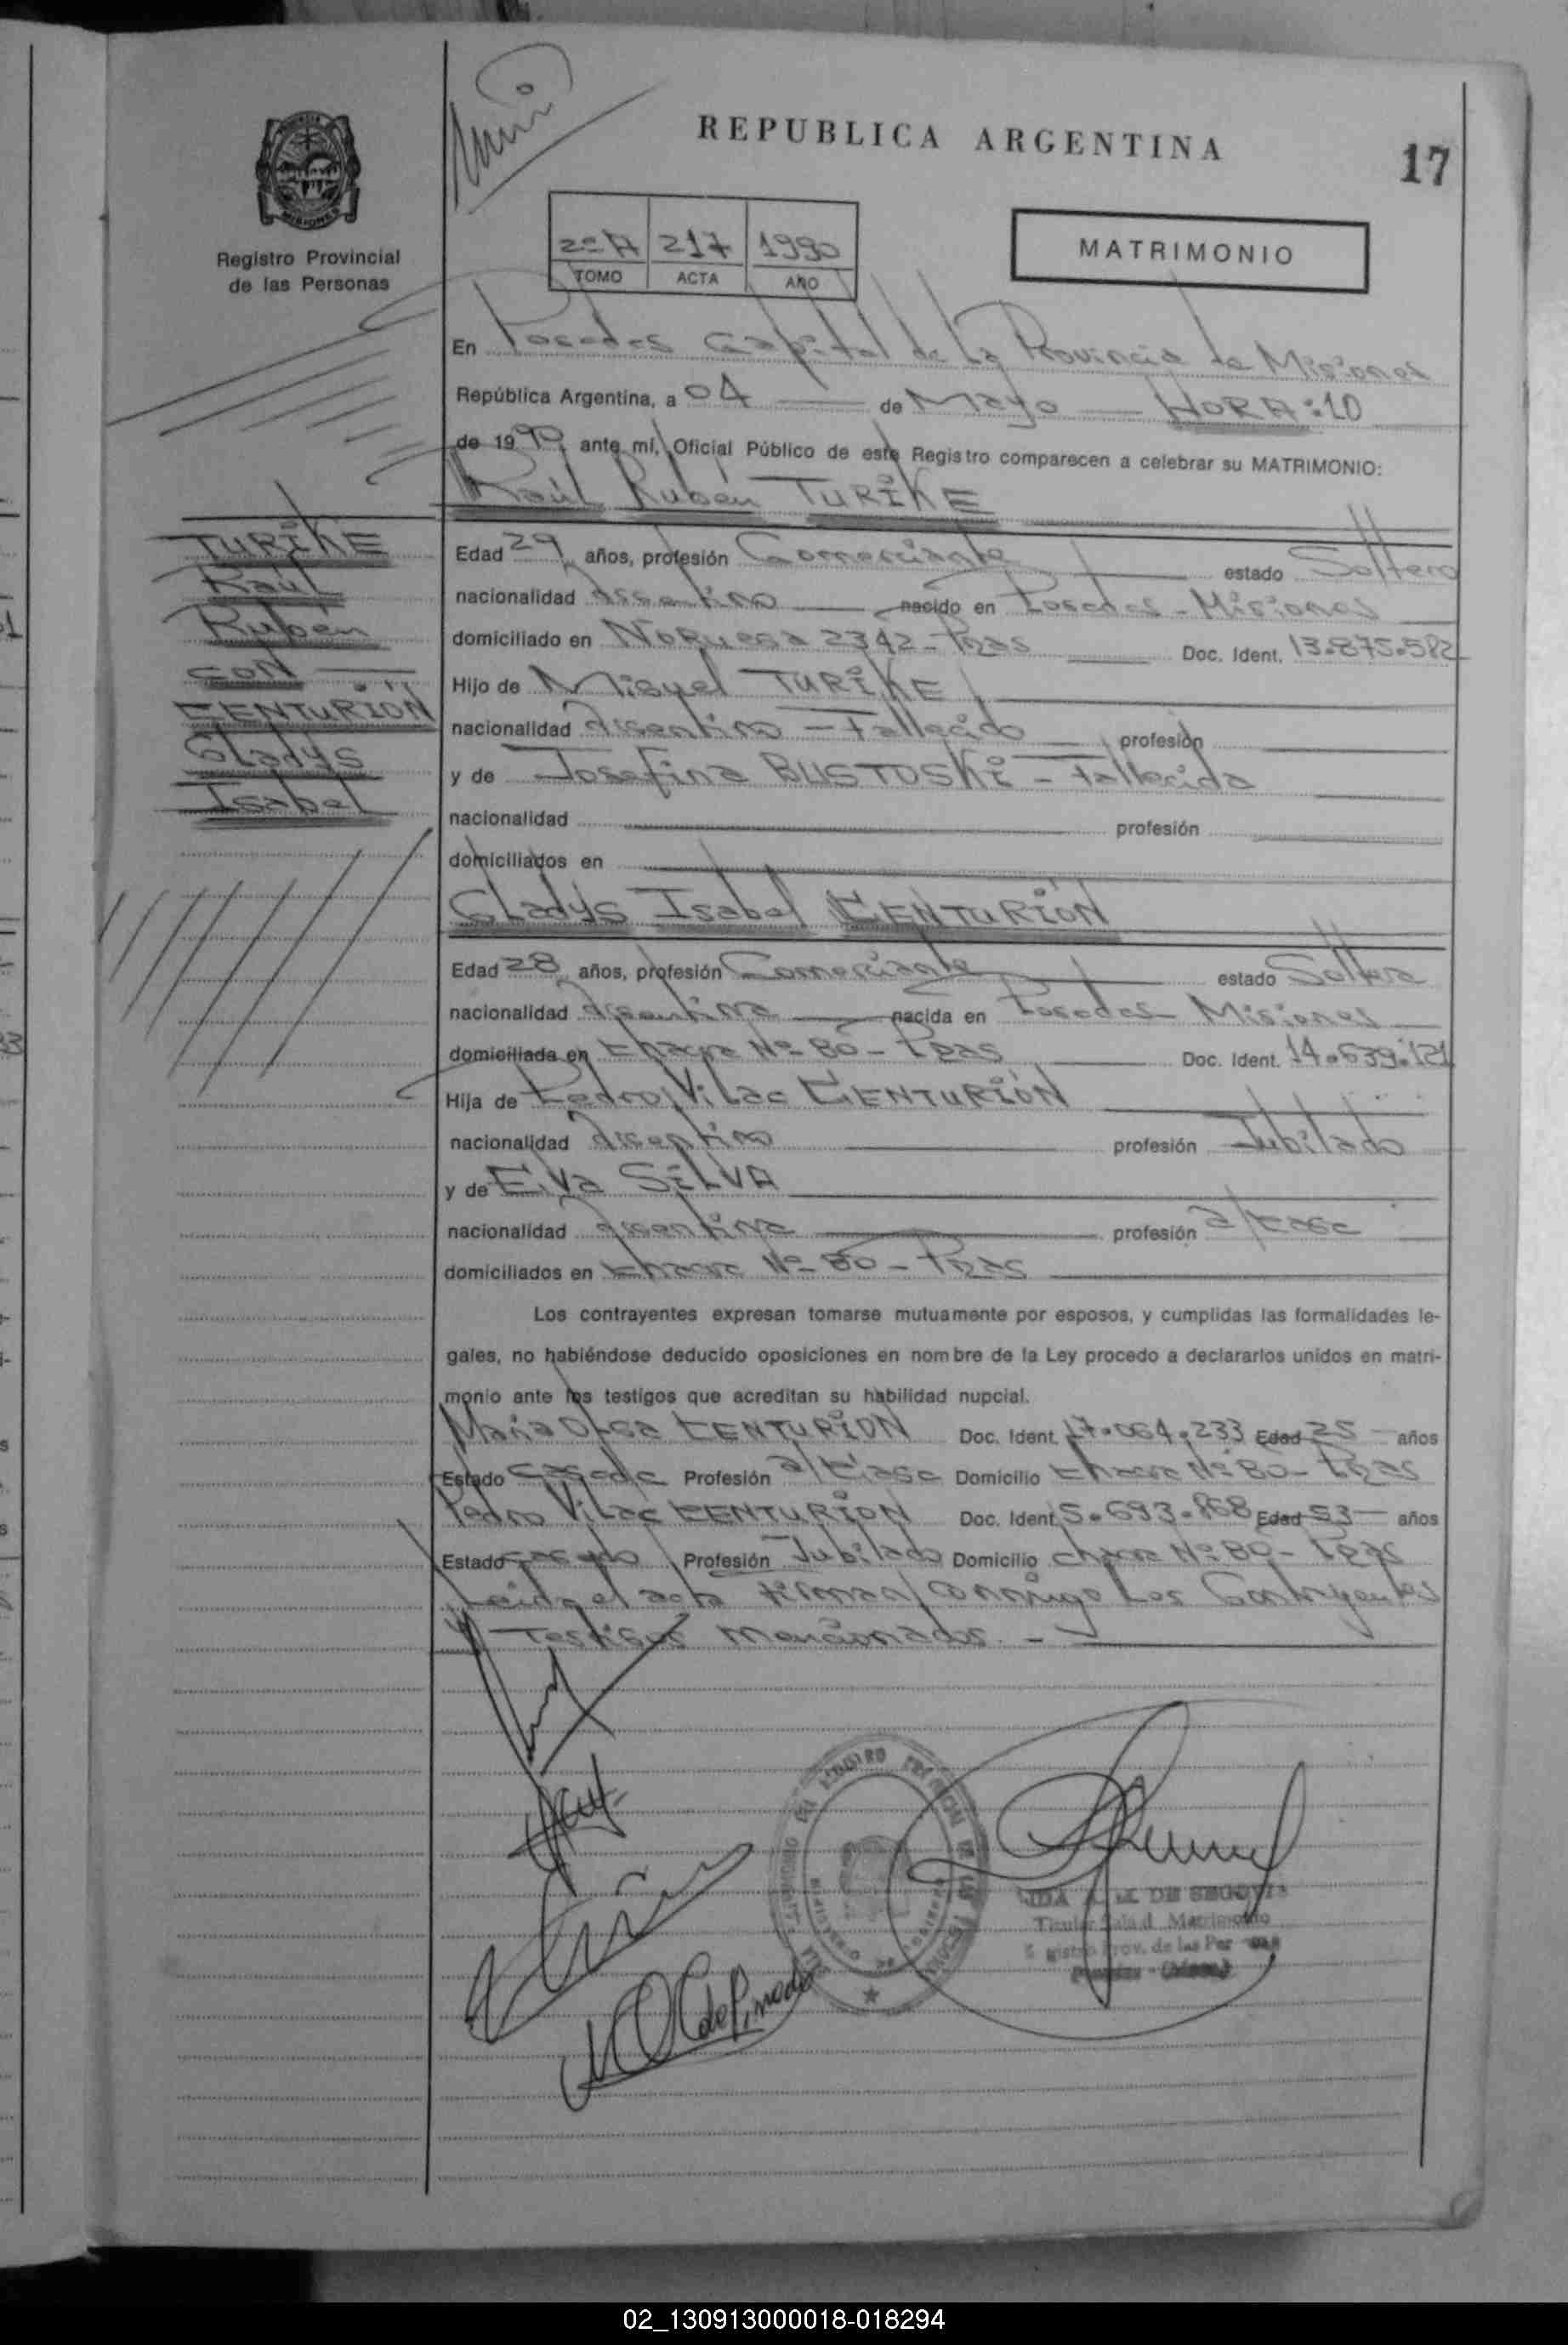 REPUBLICA ARGENTINA
17
Registro Provincial
de las Personas
2º A 217 1990
TOMO ACTA AÑO
MATRIMONIO
En Posadas Capital de La Provincia de Misiones
República Argentina, a 04 de Mayo HORA:10
de 1990, ante mí, Oficial Público de este Registro comparecen a celebrar su MATRIMONIO:
Raúl Rubén TURIKE
TURIKE
Raúl
Rubén
con
CENTURIÓN
Gladys
Isabel
Edad 29 años, profesión Comerciante estado Soltero
nacionalidad Argentino nacido en Posadas - Misiones
domiciliado en Noruega 2342 - Pdas Doc. Ident. 13.875.582
Hijo de Miguel TURIKE
nacionalidad Argentino - Fallecido profesión
y de Josefina BUSTOSKI - Fallecida
nacionalidad profesión
domiciliados en
Gladys Isabel CENTURIÓN
Edad 28 años, profesión Comerciante estado Soltera
nacionalidad Argentina nacida en Posadas - Misiones
domiciliada en Chacra Nº 80 - Pdas Doc. Ident. 14.639.121
Hija de Pedro Vilac CENTURIÓN
nacionalidad Argentino profesión Jubilado
y de Elva SILVA
nacionalidad Argentina profesión a/casa
domiciliados en Chacra Nº 80 - Pdas
Los contrayentes expresan tomarse mutuamente por esposos, y cumplidas las formalidades le-
gales, no habiéndose deducido oposiciones en nombre de la Ley procedo a declararlos unidos en matri-
monio ante los testigos que acreditan su habilidad nupcial.
Maria Olga CENTURION Doc. Ident. 17.064.233 Edad 25 años
Estado casada Profesión a/casa Domicilio Chacra Nº 80 - Pdas
Pedro Vilac CENTURION Doc. Ident. 5.693.868 Edad 53 años
Estado casado Profesión Jubilado Domicilio chacra Nº 80 - Pdas
Leida el acta firman conmigo Los Contrayentes
y Testigos mencionados. -
M O C de Pineda
DE SEGOVIA
Titular Sala d Matrimonio
Prov. de las Per
02_130913000018-018294